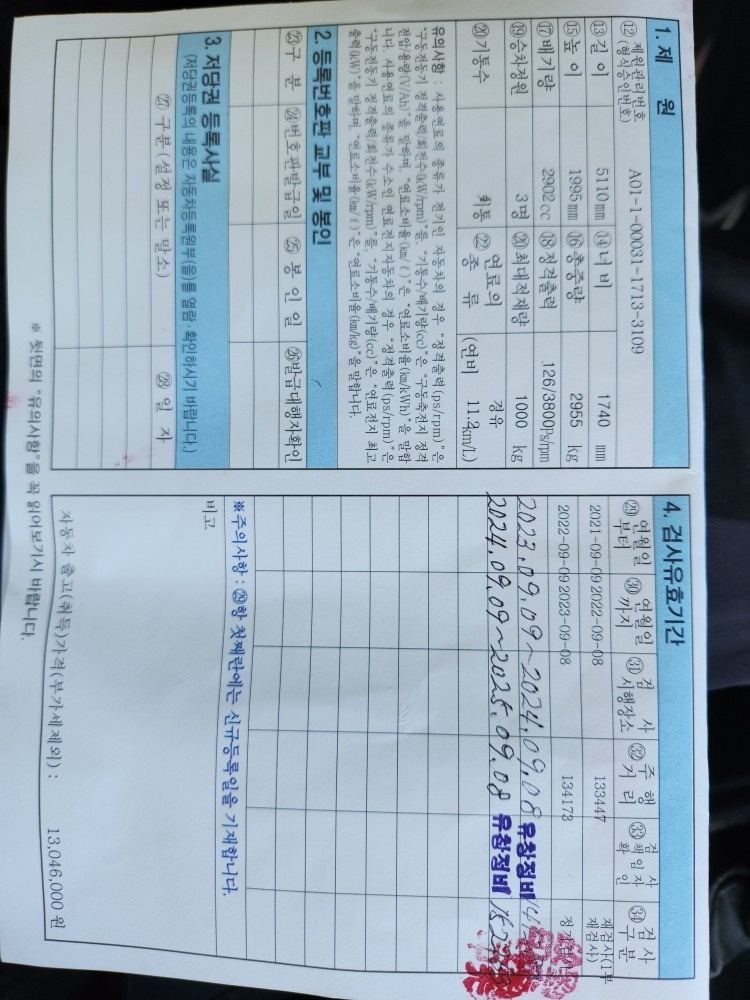 1. 제 원
⑫ 제원관리번호 (형식승인번호) A01-1-00031-1713-3109
⑬ 길 이 5110 mm ⑭ 너 비 1740 mm
⑮ 높 이 1995 mm ⑯ 총중량 2955 kg
⑰ 배기량 2902 cc ⑱ 정격출력 126/3800 ps/rpm
⑲ 승차정원 3명 ⑳ 최대적재량 1000 kg
⑳ 기통수 기통 ㉒ 연료의 종류 경유 (연비 km/L)
유의사항 : 사용연료의 종류가 전기인 자동차의 경우 "정격출력(ps/rpm)"은
"구동전동기 정격출력/회전수(kW/rpm)"를, "기통수/배기량(cc)"은 "구동축전지 정격
전압/용량(V/Ah)"을 말하며, "연료소비율(km/ℓ)"은 "연료소비율(km/kWh)"을 말합
니다. 사용연료의 종류가 수소인 연료전지자동차의 경우 "정격출력(ps/rpm)"은
"구동전동기 정격출력/회전수(kW/rpm)"를, "기통수/배기량(cc)"은 "연료전지 최고
출력(kW)"을 말하며, "연료소비율(km/ℓ)"은 "연료소비율(km/kg)"을 말합니다.
2. 등록번호판 교부 및 봉인
㉓ 구 분 ㉔ 번호판발급일 ㉕ 봉 인 일 ㉖ 발급대행자확인
3. 저당권 등록사실
(저당권등록의 내용은 자동차등록원부(을)를 열람·확인하시기 바랍니다.)
㉗ 구분(설정 또는 말소) ㉘ 일 자
※ 뒷면의 "유의사항"을 꼭 읽어보기시 바랍니다.
4. 검사유효기간
㉙ 연월일부터 ㉚ 연월일까지 ㉛ 검 사 시행장소 ㉜ 주 행 거 리 ㉝ 검 사 책임자 확 인 ㉞ 검사 구분
2021-09-09 2022-09-08 133447 재검사(1부 재검사)
2022-09-09 2023-09-08 134173
2023.09.09~2024.09.08 유창정비
2024.09.09~2025.09.08 유창정비
※주의사항 : ㉙항 첫째란에는 신규등록일을 기재합니다.
비고
자동차 출고(취득)가격(부가세제외) : 13,046,000 원